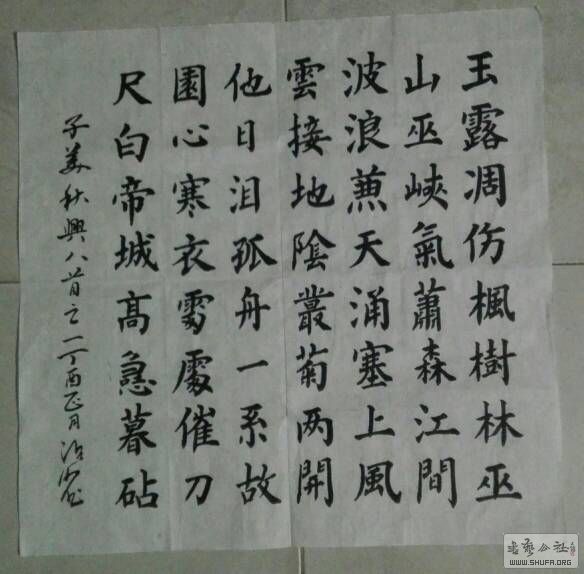 玉露凋伤楓樹林巫
山巫峽氣蕭森江間
波浪蒹天涌塞上風
雲接地陰叢菊两開
他日泪孤舟一系故
園心寒衣處處催刀
尺白帝城高急暮砧
子美秋興八首之一丁酉正月
书艺公社
WWW.SHUFA.ORG